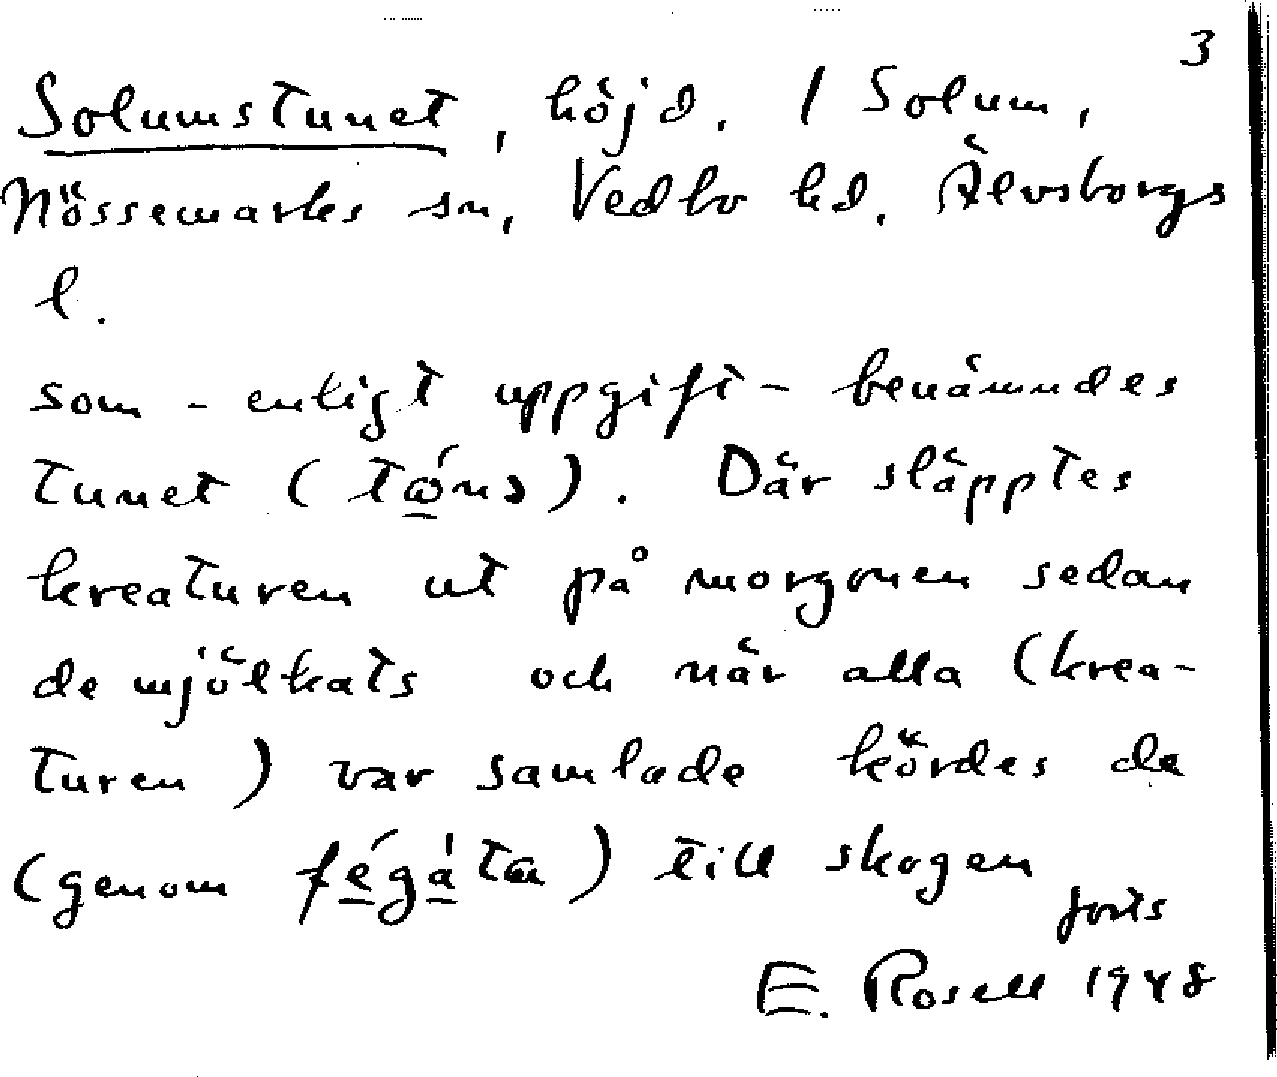 3
Solumstunet, höjd. / Solum,
Nössemarks sn, Vedbo hd. Älvsborgs
l.
som - enligt uppgift - benämndes
tunet (). Där släpptes
kreaturen ut på morgonen sedan
de mjölkats och när alla (krea-
turen) var samlade kördes de
(genom fégáta) till skogen
forts
E. Rosell 1948